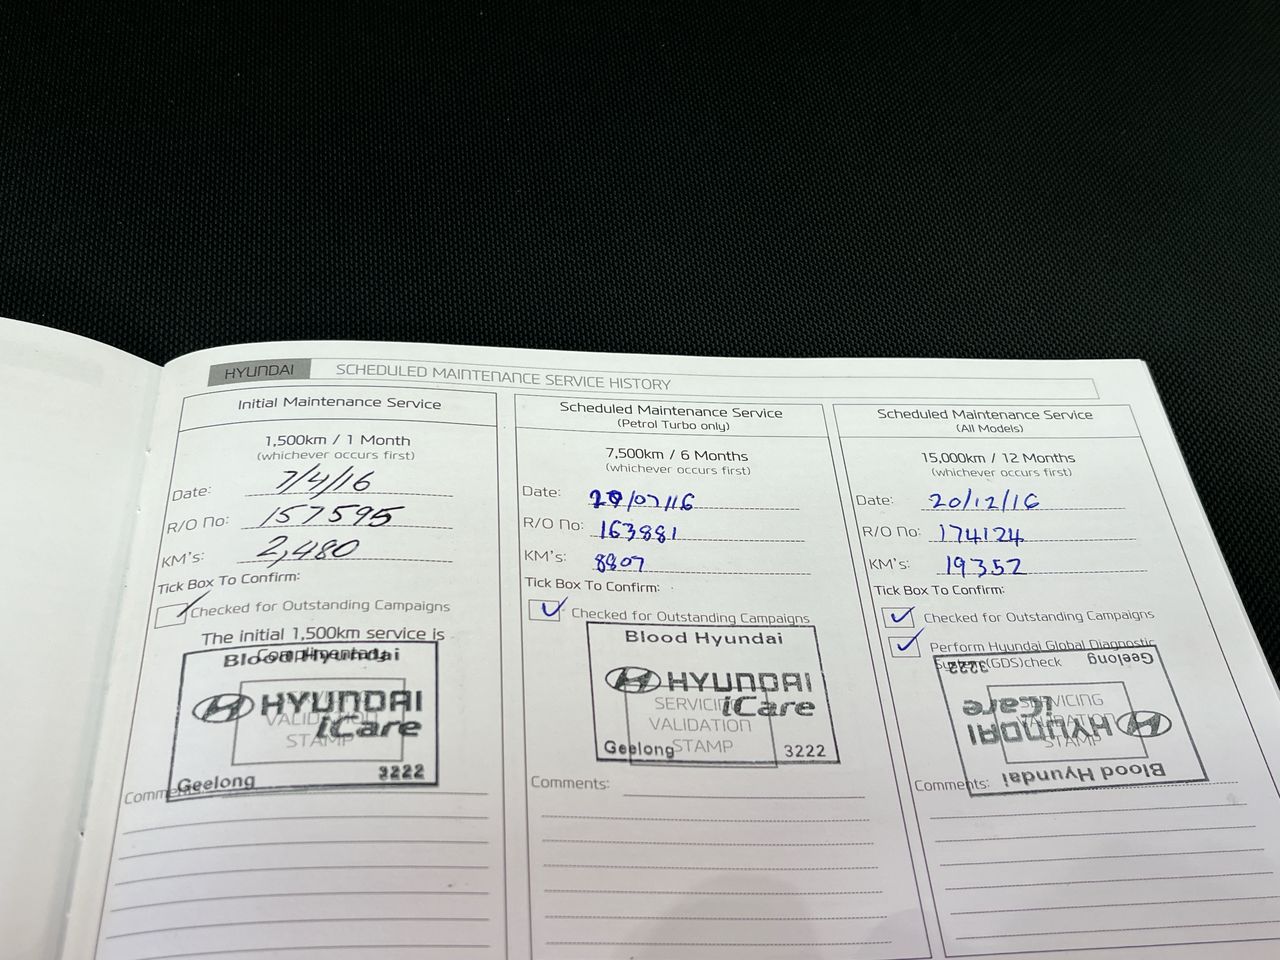 HYUNDAI SCHEDULED MAINTENANCE SERVICE HISTORY
Initial Maintenance Service
1,500km / 1 Month
(whichever occurs first)
Date: 7/4/16
R/O No: 157595
KM's: 2,480
Tick Box To Confirm:
Checked for Outstanding Campaigns
The initial 1,500km service is
Complimentary
Blood Hyundai
HYUNDAI
iCare
VALIDATION
STAMP
Geelong 3222
Comments:
Scheduled Maintenance Service
(Petrol Turbo only)
7,500km / 6 Months
(whichever occurs first)
Date: /07/16
R/O No: 163881
KM's: 8807
Tick Box To Confirm:
Checked for Outstanding Campaigns
Blood Hyundai
HYUNDAI
iCare
SERVICING
VALIDATION
STAMP
Geelong 3222
Comments:
Scheduled Maintenance Service
(All Models)
15,000km / 12 Months
(whichever occurs first)
Date: 20/12/16
R/O No: 174124
KM's: 19352
Tick Box To Confirm:
Checked for Outstanding Campaigns
Perform Hyundai Global Diagnostic
System (GDS) check
Geelong 3222
SERVICING
VALIDATION
STAMP
iCare
HYUNDAI
Blood Hyundai
Comments: